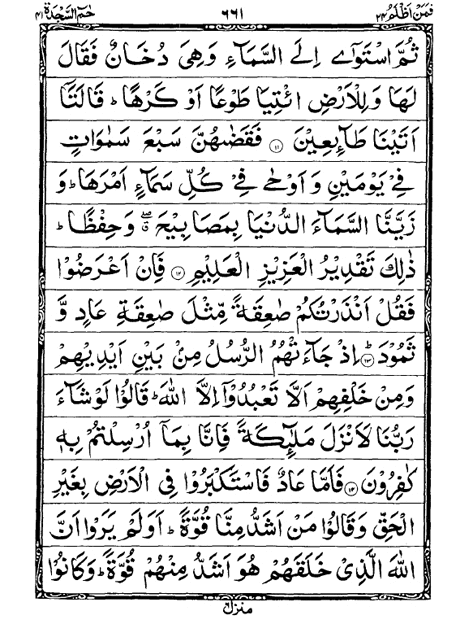 فمن اظلم ٢٤ ٦٦١ حم السجدة ٤١
ثُمَّ اسْتَوٰٓى اِلَى السَّمَآءِ وَهِىَ دُخَانٌ فَقَالَ
لَهَا وَ لِلْاَرْضِ ائْتِيَا طَوْعًا اَوْ كَرْهًا ؕ قَالَتَاۤ
اَتَيْنَا طَآئِعِيْنَ ۝١١ فَقَضٰهُنَّ سَبْعَ سَمٰوَاتٍ
فِىْ يَوْمَيْنِ وَ اَوْحٰى فِىْ كُلِّ سَمَآءٍ اَمْرَهَا ؕ وَ
زَيَّنَّا السَّمَآءَ الدُّنْيَا بِمَصَابِيْحَ ۖ وَ حِفْظًا ؕ
ذٰلِكَ تَقْدِيْرُ الْعَزِيْزِ الْعَلِيْمِ ۝١٢ فَاِنْ اَعْرَضُوْا
فَقُلْ اَنْذَرْتُكُمْ صٰعِقَةً مِّثْلَ صٰعِقَةِ عَادٍ وَّ
ثَمُوْدَ ؕ۝١٣ اِذْ جَآءَتْهُمُ الرُّسُلُ مِنْ بَيْنِ اَيْدِيْهِمْ
وَمِنْ خَلْفِهِمْ اَلَّا تَعْبُدُوْۤا اِلَّا اللّٰهَ ؕ قَالُوْا لَوْ شَآءَ
رَبُّنَا لَاَنْزَلَ مَلٰٓئِكَةً فَاِنَّا بِمَاۤ اُرْسِلْتُمْ بِهٖ
كٰفِرُوْنَ ۝١٤ فَاَمَّا عَادٌ فَاسْتَكْبَرُوْا فِى الْاَرْضِ بِغَيْرِ
الْحَقِّ وَقَالُوْا مَنْ اَشَدُّ مِنَّا قُوَّةً ؕ اَوَلَمْ يَرَوْا اَنَّ
اللّٰهَ الَّذِىْ خَلَقَهُمْ هُوَ اَشَدُّ مِنْهُمْ قُوَّةً ؕ وَكَانُوْا
منزل ٦